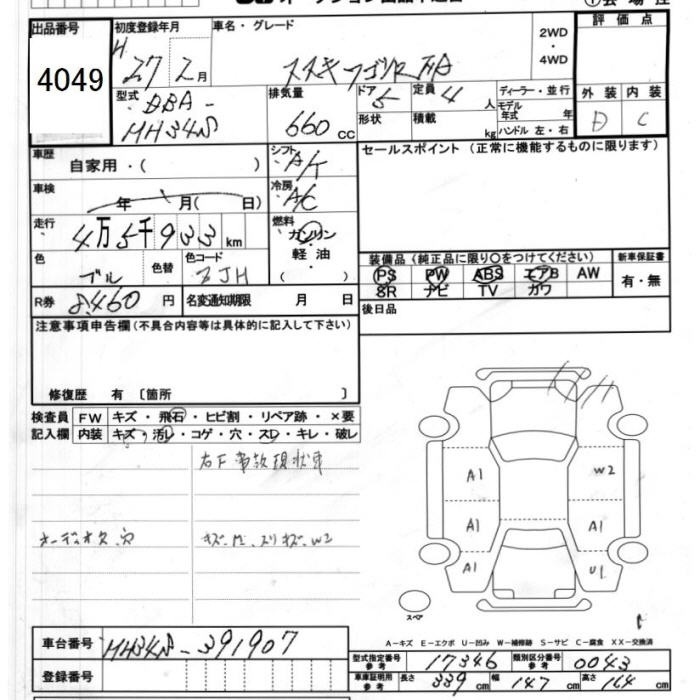 出品番号 初度登録年月 車名・グレード 2WD・4WD 評価点
4049
H 27 2月 スズキ ワゴンR FA
型式 DBA-MH34S 排気量 660 CC ドア 5 定員 4人 ディーラー・並行 外装 内装
形状 積載 kg モデル年式 年 ハンドル 左・右 D C
車歴 自家用・( ) シフト A/T セールスポイント (正常に機能するものに限ります)
車検 年 月( 日) 冷房 A/C
走行 4万5千933km 燃料 ガソリン 軽油 ( )
色 ブル 色替 色コード ZJH
装備品 (純正品に限り〇をつけてください) 新車保証書
PS PW ABS エアB AW 有・無
SR ナビ TV カワ
R券 8,460円 名変通知期限 月 日 後日品
注意事項申告欄(不具合内容等は具体的に記入して下さい)
修復歴 有 〔箇所 〕
検査員 FW キズ・飛石・ヒビ割・リペア跡・×要
記入欄 内装 キズ・汚レ・コゲ・穴・スレ・キレ・破レ
現状車
オーディオ欠、穴
W2
A1 W2
A1 A1
A1 U1
スペア
A-キズ E-エクボ U-凹み W-補修跡 S-サビ C-腐食 XX-交換済
車台番号 MH34S-391907
登録番号
型式指定番号参考 17346 類別区分番号参考 0043
車庫証明用参考 長さ 339cm 幅 147cm 高さ 164cm